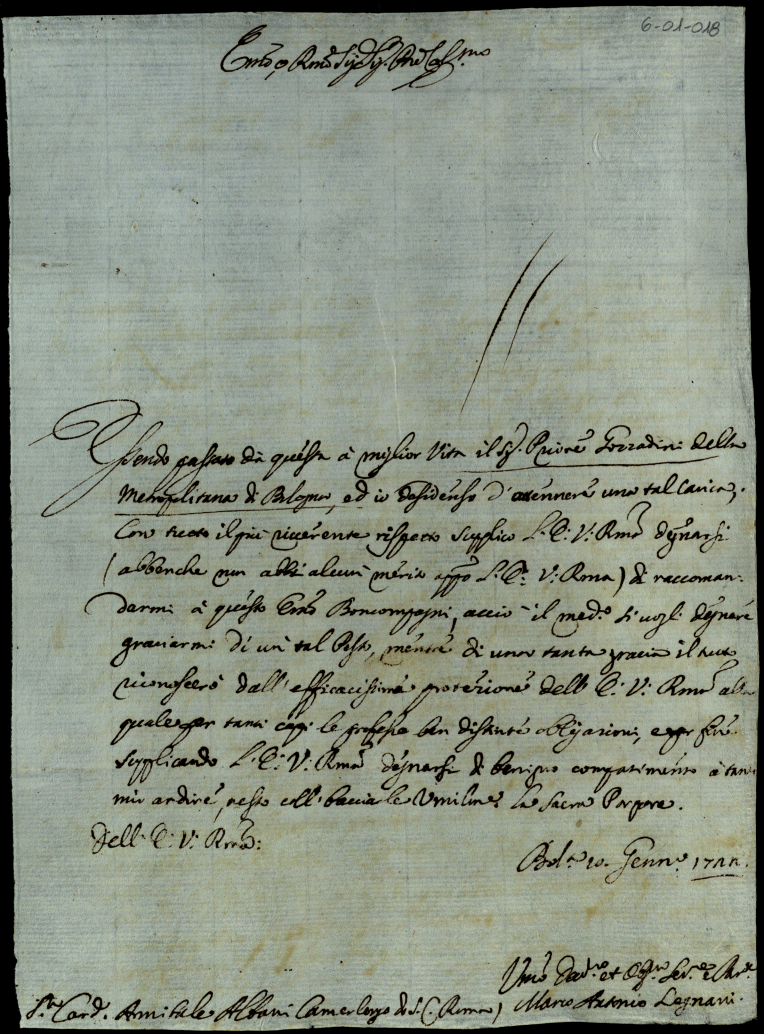 6-01-018
Emo, e Rmo Sig.r Sig.r Pne Col.mo
Essendo passato da questa à miglior Vita il Sig.r Priore Gozzadini della
Metropolitana di Bologna, ed io desideroso d'ottennere una tal Carica,
Con tutto il più riverente rispetto supplico L'E: V: Rma degnarsi
(abbenche non abbi alcun merito appo L'E: V: Rma) di raccoman:
darmi à questo Emo Boncompagni, acciò il med.o si vogli degnare
graziarmi di un tal Posto, mentre di una tanta grazia il tutto
riconoscerò dall'efficacissima protezione dell'E: V: Rma alla
quale per tanti capi le professo ben distinte obligazioni, e per fine
supplicando L'E: V: Rma degnarsi di benigno compatimento à tan:
mio ardire, resto coll'bacciarle Umilme: la Sacra Porpora.
Dell'E: V: Rma:
Bol.a 10. Genn.o
Umo Dev.mo et Obg.mo Ser.e
S.r Card. Annibale Albani Camerlengo di S. C. (Roma)
Marco Antonio Legnani.